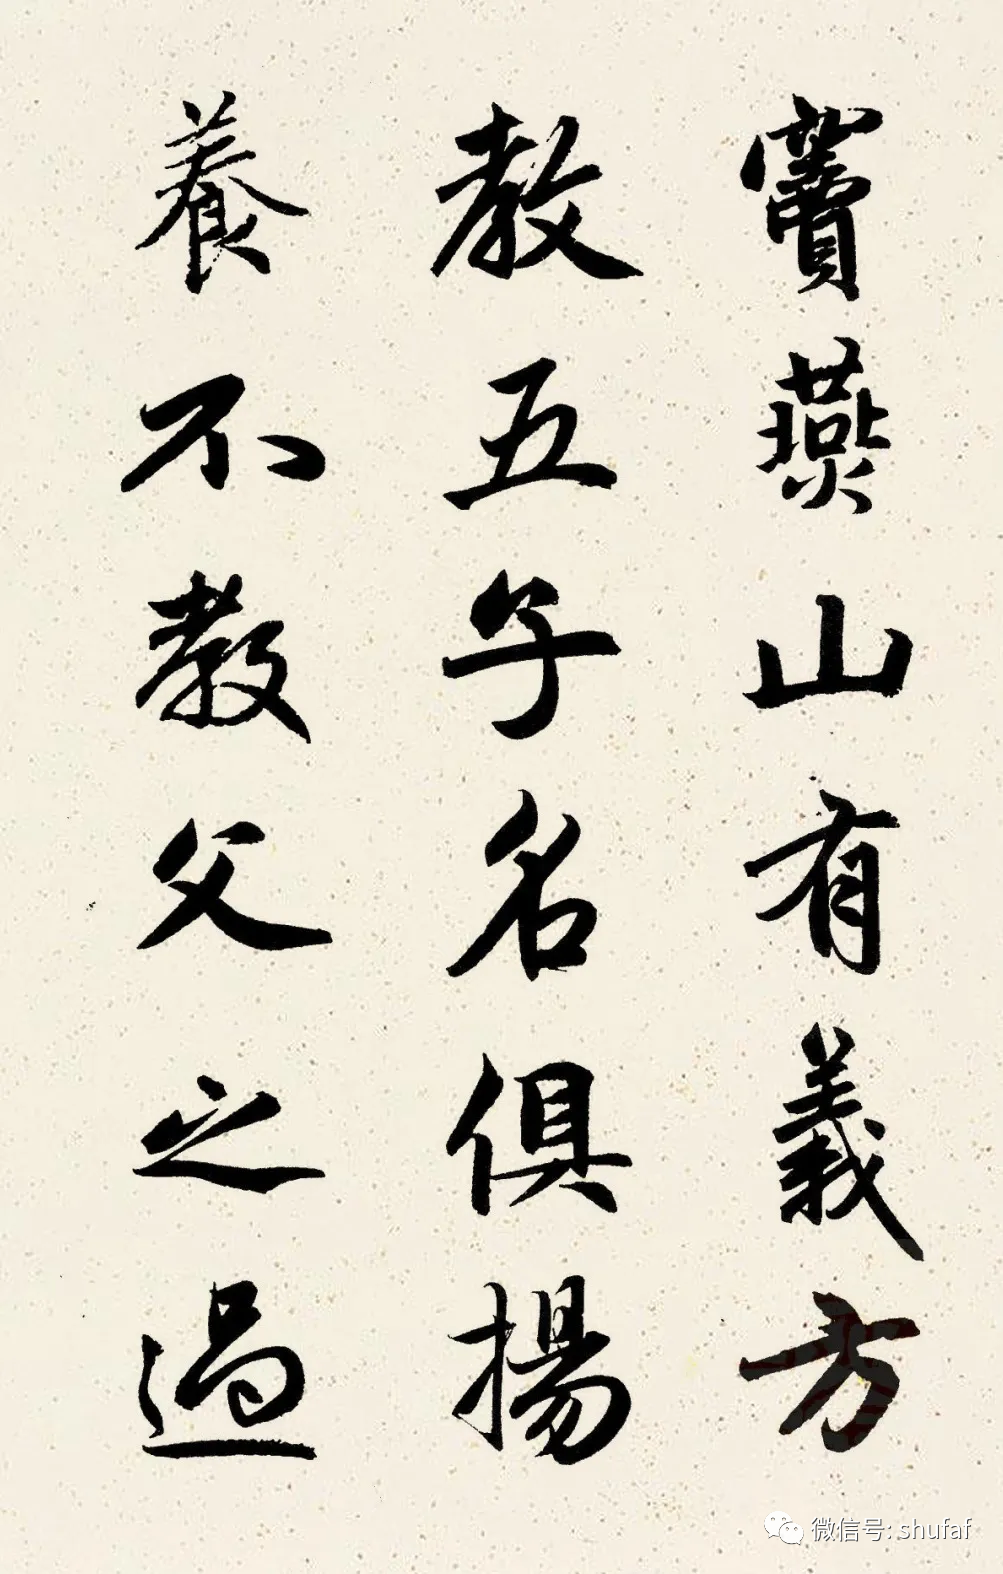 竇燕山有義方
教五子名俱揚
養不教父之過
微信号: shufaf